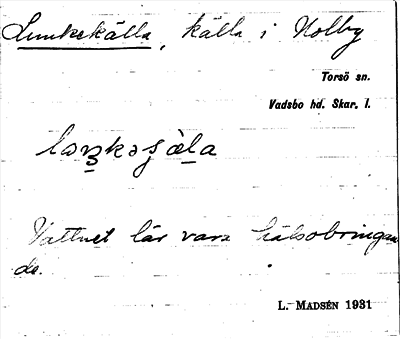 Lunkekälla, källa i Nolby
Torsö sn.
Vadsbo hd. Skar. l.
Vattnet lär vara hälsobringan
de.
L. MADSÉN 1931